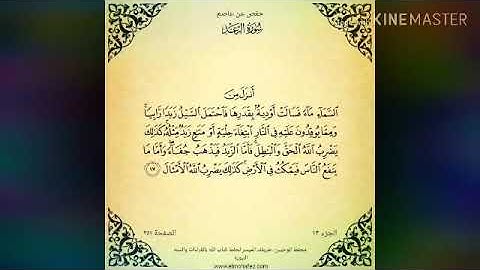 KINEMASTER
حفص عن عاصم
سُورَةُ الرَّعْدِ
أَنزَلَ مِنَ
السَّمَآءِ مَآءً فَسَالَتْ أَوْدِيَةٌۢ بِقَدَرِهَا فَٱحْتَمَلَ ٱلسَّيْلُ زَبَدًا رَّابِيًا ۚ
وَمِمَّا يُوقِدُونَ عَلَيْهِ فِى ٱلنَّارِ ٱبْتِغَآءَ حِلْيَةٍ أَوْ مَتَٰعٍ زَبَدٌ مِّثْلُهُۥ ۚ كَذَٰلِكَ
يَضْرِبُ ٱللَّهُ ٱلْحَقَّ وَٱلْبَٰطِلَ ۚ فَأَمَّا ٱلزَّبَدُ فَيَذْهَبُ جُفَآءً ۖ وَأَمَّا مَا
يَنفَعُ ٱلنَّاسَ فَيَمْكُثُ فِى ٱلْأَرْضِ ۚ كَذَٰلِكَ يَضْرِبُ ٱللَّهُ ٱلْأَمْثَالَ ١٧
الجزء ١٣
الصفحة ٢٥١
www.elmohafez.com